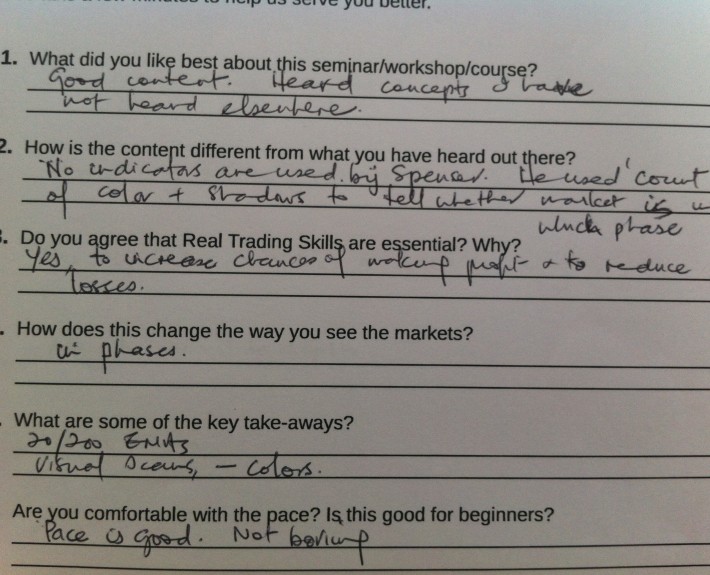 to help us serve you better.
1. What did you like best about this seminar/workshop/course?
Good content. Heard concepts I have
not heard elsewhere.
2. How is the content different from what you have heard out there?
No indicators are used by Spencer. He used 'count
of color + shadows to tell whether market is
which phase
Do you agree that Real Trading Skills are essential? Why?
Yes, to increase chances of making profit & to reduce
losses.
How does this change the way you see the markets?
in phases.
What are some of the key take-aways?
20/200 EMAs
Visual Scans, - Colors.
Are you comfortable with the pace? Is this good for beginners?
Pace is good. Not boring